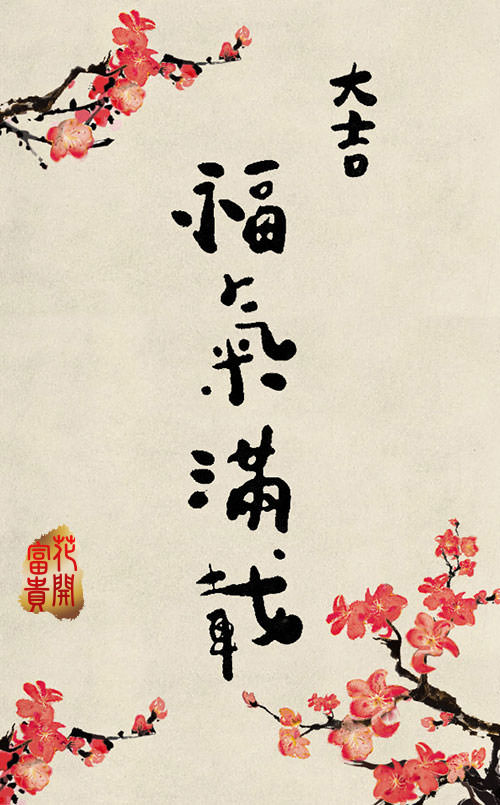 大吉
福氣滿載
花開
富貴